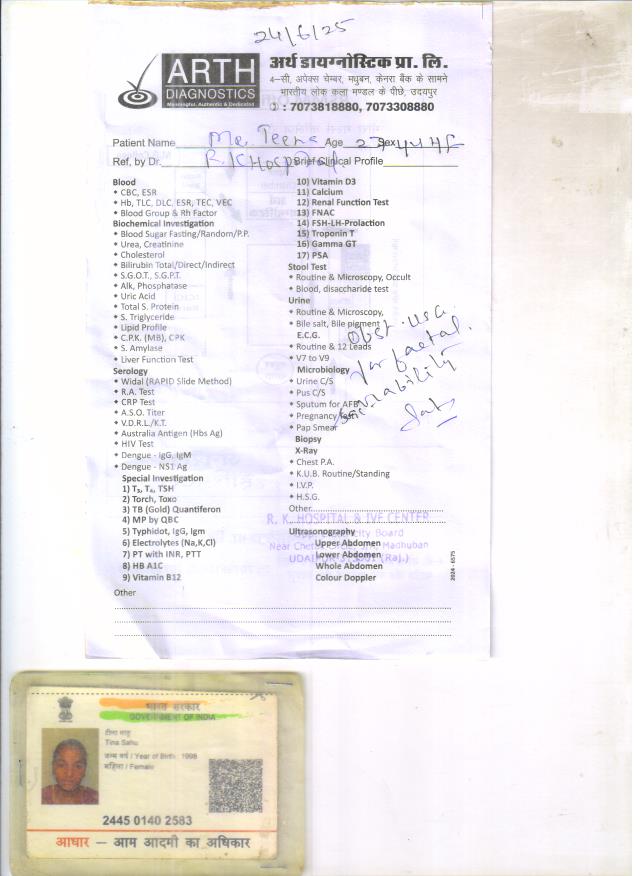 24/6/25
ARTH
DIAGNOSTICS
Meaningful, Authentic & Dedicated
अर्थ डायग्नोस्टिक प्रा. लि.
4–सी, अपेक्स चेम्बर, मधुबन, केनरा बैंक के सामने
भारतीय लोक कला मण्डल के पीछे, उदयपुर
: 7073818880, 7073308880
Patient Name Teena Age Sex
Ref, by Dr. R.K Hospital Brief Clinical Profile
Blood
• CBC, ESR
• Hb, TLC, DLC, ESR, TEC, VEC
• Blood Group & Rh Factor
Biochemical Investigation
• Blood Sugar Fasting/Random/P.P.
• Urea, Creatinine
• Cholesterol
• Bilirubin Total/Direct/Indirect
• S.G.O.T., S.G.P.T.
• Alk, Phosphatase
• Uric Acid
• Total S. Protein
• S. Triglyceride
• Lipid Profile
• C.P.K. (MB), CPK
• S. Amylase
• Liver Function Test
Serology
• Widal (RAPID Slide Method)
• R.A. Test
• CRP Test
• A.S.O. Titer
• V.D.R.L./K.T.
• Australia Antigen (Hbs Ag)
• HIV Test
• Dengue - IgG, IgM
• Dengue - NS1 Ag
Special Investigation
1) T₃, T₄, TSH
2) Torch, Toxo
3) TB (Gold) Quantiferon
4) MP by QBC
5) Typhidot, IgG, Igm
6) Electrolytes (Na,K,Cl)
7) PT with INR, PTT
8) HB A1C
9) Vitamin B12
10) Vitamin D3
11) Calcium
12) Renal Function Test
13) FNAC
14) FSH-LH-Prolaction
15) Troponin T
16) Gamma GT
17) PSA
Stool Test
• Routine & Microscopy, Occult
• Blood, disaccharide test
Urine
• Routine & Microscopy,
• Bile salt, Bile pigment
E.C.G.
• Routine & 12 Leads
• V7 to V9
Microbiology
• Urine C/S
• Pus C/S
• Sputum for AFB
• Pregnancy Test
• Pap Smear
Biopsy
X-Ray
• Chest P.A.
• K.U.B. Routine/Standing
• I.V.P.
• H.S.G.
Other
Ultrasonography
Upper Abdomen
Lower Abdomen
Whole Abdomen
Colour Doppler
Obst. USG
for faetal
viability
R. K. HOSPITAL & IVF CENTER
city Board
Near Madhuban
UDAI (Raj.)
2024 - 6575
Other
भारत सरकार
GOVERNMENT OF INDIA
टीना साहू
Tina Sahu
जन्म वर्ष / Year of Birth : 1998
महिला / Female
2445 0140 2583
आधार – आम आदमी का अधिकार